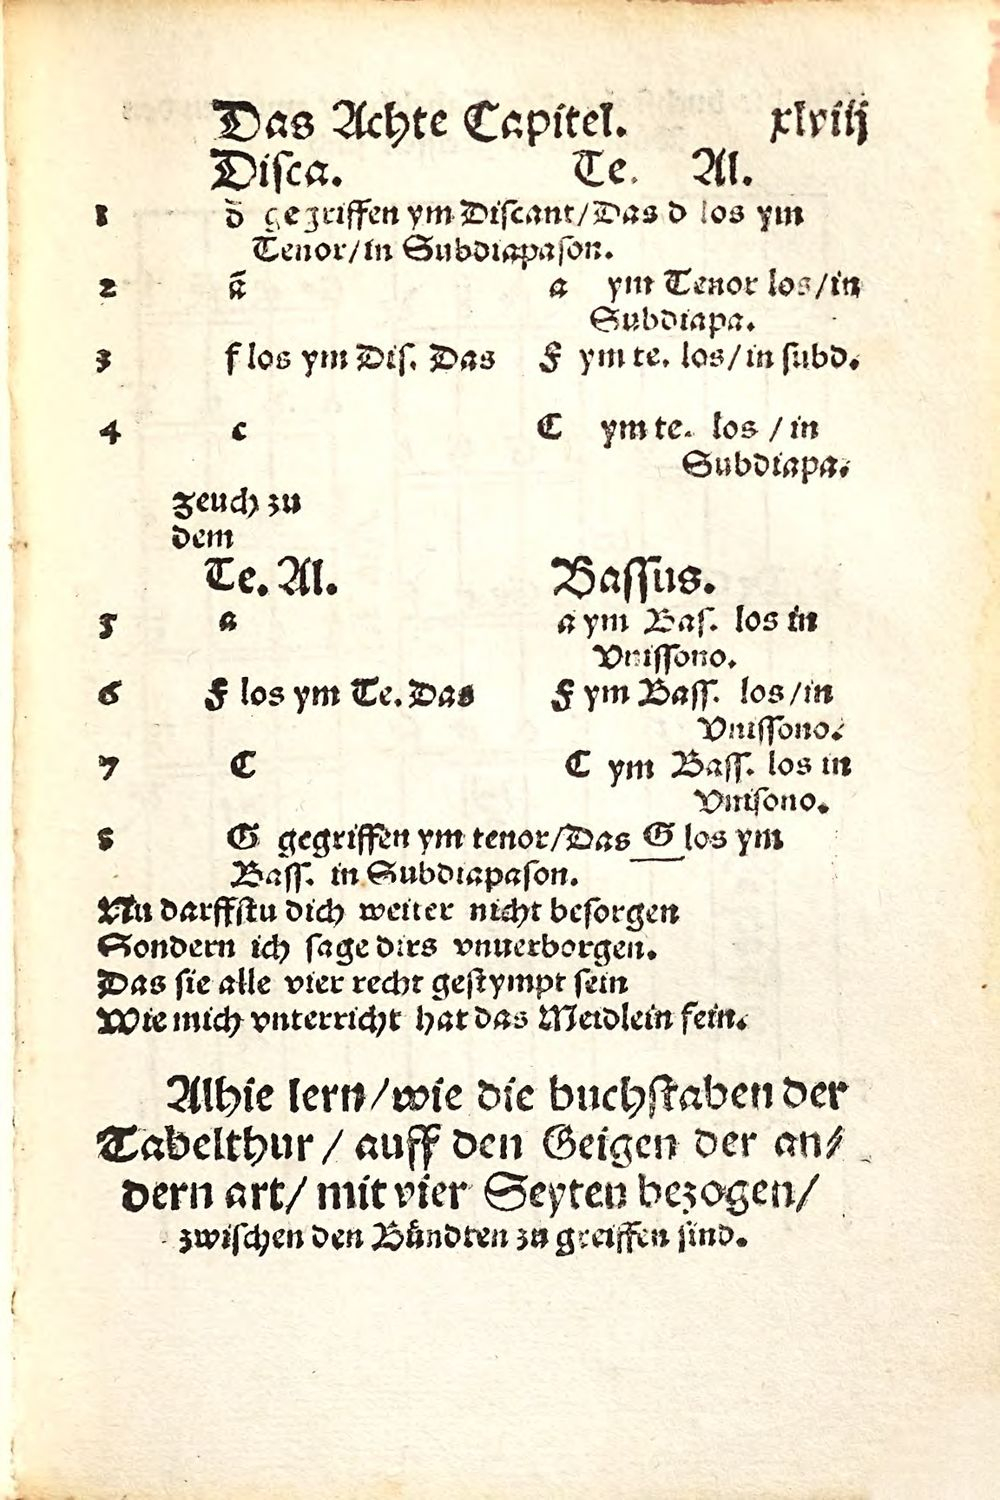 Das Achte Capitel. xlviij
Disca. Te. Al.
1 d̄ gegriffen ym Discant/Das d los ym
Tenor/in Subdiapason.
2 ā a ym Tenor los/in
Subdiapa.
3 f los ym Dis. Das F ym te. los/in subd.
4 c C ym te. los / in
Subdiapa.
Zeuch zu
dem
Te. Al. Bassus.
5 a a ym Bas. los in
Vnissono.
6 F los ym Te. Das F ym Bass. los/in
Vnissono.
7 C C ym Bass. los in
Vnisono.
8 G gegriffen ym tenor/Das G los ym
Bass. in Subdiapason.
Nu darffstu dich weiter nicht besorgen
Sondern ich sage dirs vnuerborgen.
Das sie alle vier recht gestympt sein
Wie mich vnterricht hat das Meidlein fein.
Alhie lern/wie die buchstaben der
Tabelthur / auff den Geigen der an⸗
dern art/ mit vier Seyten bezogen/
zwischen den Bündten zu greiffen sind.